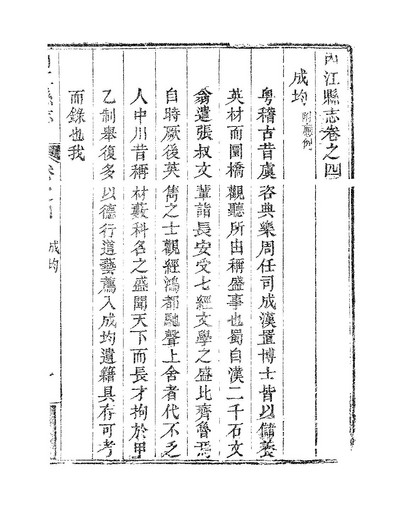 內江縣志卷之四
成均 附應例
粵稽古昔虞咨典樂周任司成漢置博士皆以儲養
英材而圜橋觀聽所由稱盛事也蜀自漢二千石文
翁遣張叔文輩詣長安受七經文學之盛比齊魯焉
自時厥後英雋之士觀經鴻都馳聲上舍者代不乏
人中川昔稱材藪科名之盛聞天下而長才拘於甲
乙制舉復多以德行道藝薦入成均遺籍具存可考
而錄也我
內江縣志 卷之四 成均 一